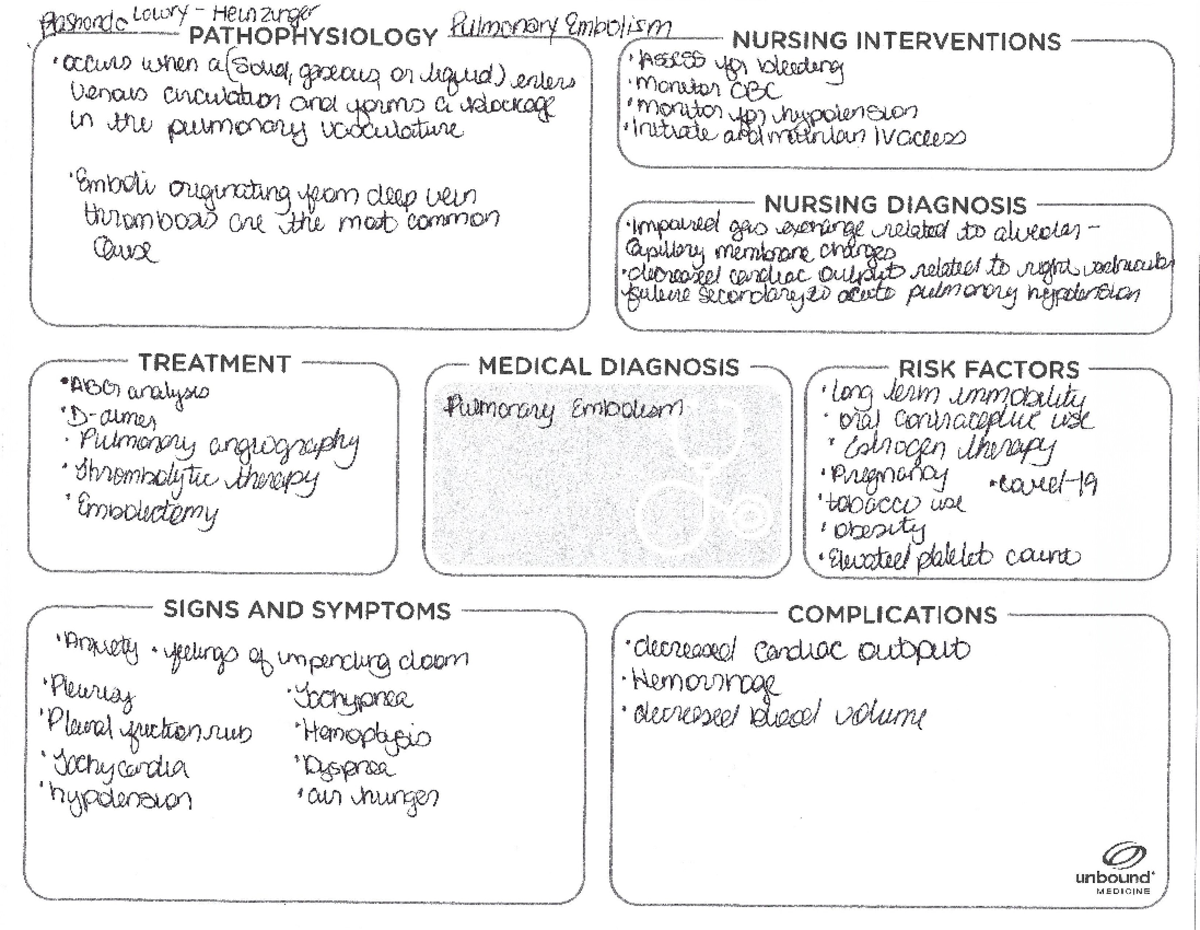 Lowry - Heinzinger
Pulmonary Embolism
PATHOPHYSIOLOGY
• occurs when a (solid, gaseous, or liquid) enters
venous circulation and forms a blockage
in the pulmonary vasculature
• Emboli originating from deep vein
thrombosis are the most common
cause
NURSING INTERVENTIONS
• Assess for bleeding
• Monitor CBC
• monitor for hypotension
• Initiate and maintain IV access
NURSING DIAGNOSIS
• Impaired gas exchange related to alveolar -
capillary membrane changes
• decreased cardiac output related to right ventricular
failure secondary to acute pulmonary hypotension
TREATMENT
• ABG analysis
• D-dimer
• Pulmonary angiography
• Thrombolytic therapy
• Embolectomy
MEDICAL DIAGNOSIS
Pulmonary Embolism
RISK FACTORS
• long term immobility
• oral contraceptive use
• Estrogen therapy
• Pregnancy • covid-19
• tobacco use
• obesity
• Elevated platelet count
SIGNS AND SYMPTOMS
• Anxiety • feelings of impending doom
• Pleurisy
• Pleural friction rub
• Tachycardia
• hypotension
• Tachypnea
• Hemoptysis
• Dyspnea
• air hunger
COMPLICATIONS
• decreased cardiac output
• Hemorrhage
• decreased blood volume
unbound
MEDICINE